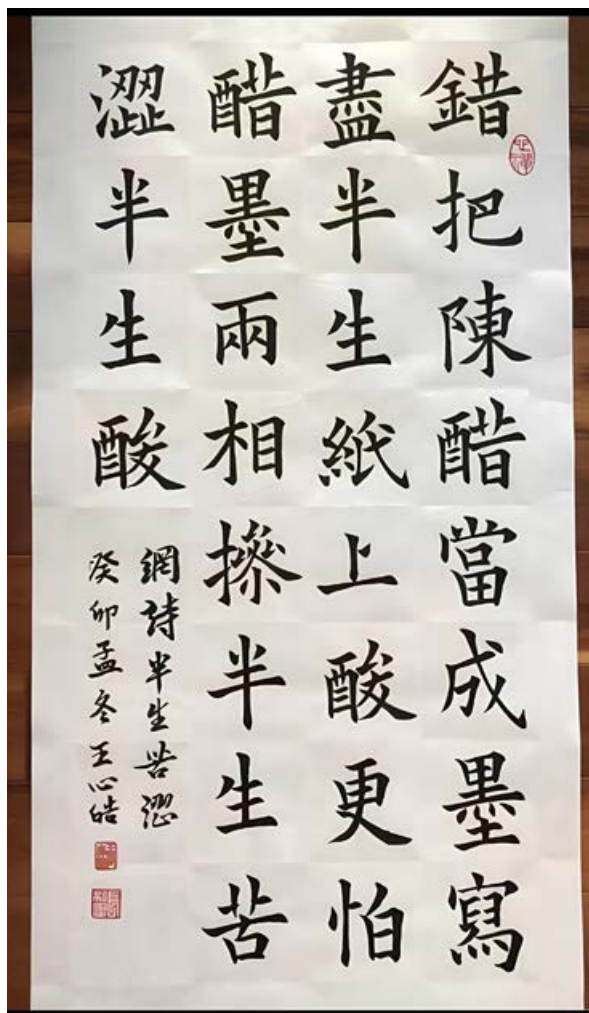 錯把陳醋當成墨寫
盡半生紙上酸更怕
醋墨兩相摻半生苦
澀半生酸
網詩半生苦澀
癸卯孟冬王心皓